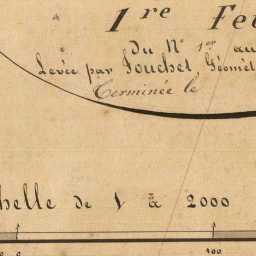 1re Feu
Du N° 1er au
Levée par Fouchet, Géomèt
Terminée le
helle de 1 à 2000
0 0 100